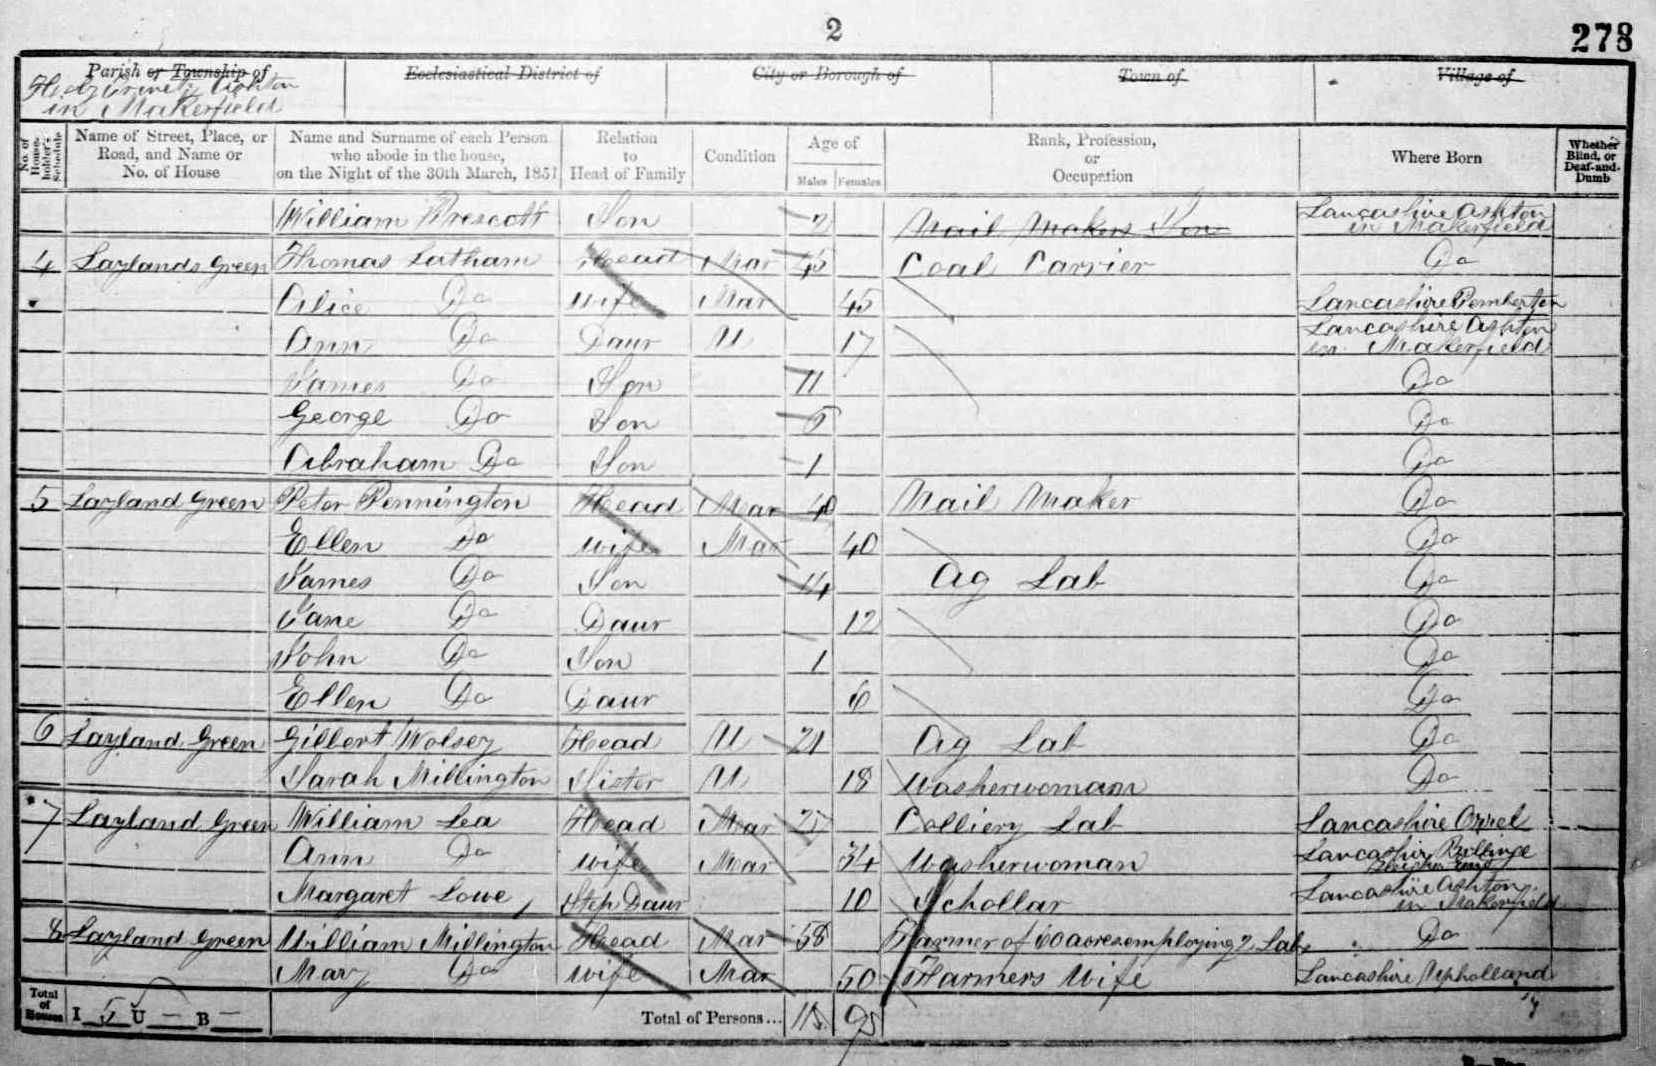 2
278
Parish or Township of Ecclesiastical District of City or Borough of Town of Village of
Holy Trinity Ashton
in Makerfield
No. of House-holder's Schedule
Name of Street, Place, or Road, and Name or No. of House
Name and Surname of each Person who abode in the house, on the Night of the 30th March, 1851
Relation to Head of Family
Condition
Age of
Males Females
Rank, Profession, or Occupation
Where Born
Whether Blind, or Deaf-and-Dumb
William Prescott Son 2 Nail Makers Son Lancashire Ashton in Makerfield
4 Laylands Green Thomas Latham Head Mar 45 Coal Carrier Do
Alice Do Wife Mar 45 Lancashire Pemberton
Ann Do Daur U 17 Lancashire Ashton in Makerfield
James Do Son 11 Do
George Do Son 5 Do
Abraham Do Son 1 Do
5 Layland Green Peter Pennington Head Mar 40 Nail Maker Do
Ellen Do Wife Mar 40 Do
James Do Son 14 Ag Lab Do
Jane Do Daur 12 Do
John Do Son 1 Do
Ellen Do Daur 6 Do
6 Layland Green Gilbert Wolsey Head U 21 Ag Lab Do
Sarah Millington Sister U 18 Washerwoman Do
7 Layland Green William Lea Head Mar Colliery Lab Lancashire Orrel
Ann Do Wife Mar 34 Washerwoman Lancashire Billinge
Margaret Lowe Step Daur 10 Schollar Lancashire Ashton in Makerfield
8 Layland Green William Millington Head Mar 58 Farmer of 60 acres employing 2 Lab Do
Mary Do Wife Mar 50 Farmers Wife Lancashire Upholland
Total of Houses I 5 U — B — Total of Persons... 11 9